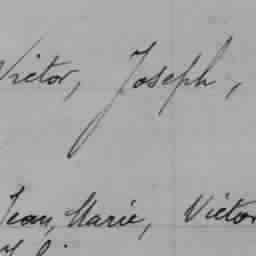 Victor, Joseph,
Jean, Marie, Victor